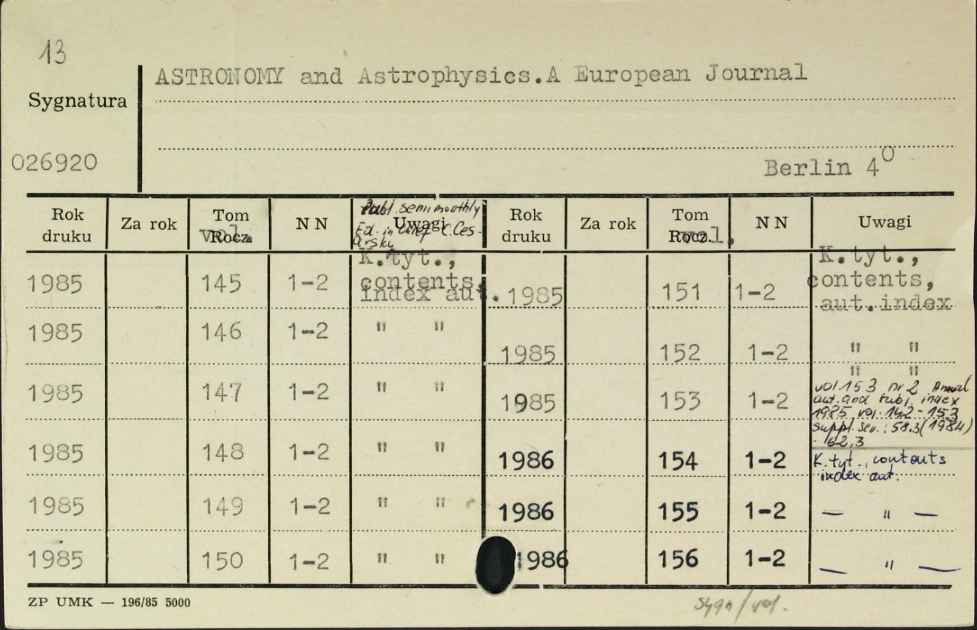 13
ASTRONOMY and Astrophysics.A European Journal
Sygnatura
026920
Berlin 4º
Rok druku Za rok Tom Rocz. vol. N N Uwagi Rok druku Za rok Tom Rocz. vol. N N Uwagi
Publ. semimonthly
Ed. in chief C. Ces-
arsky
1985 145 1-2 K.tyt., contents, index aut.
1985 146 1-2 " "
1985 147 1-2 " "
1985 148 1-2 " "
1985 149 1-2 " "
1985 150 1-2 " "
1985 151 1-2 K.tyt., contents, aut.index
1985 152 1-2 " "
1985 153 1-2 " "
vol 153 nr 2 Annual
aut. and subj. index
1985 vol. 142-153
suppl. ser.: 58.3 (1984)
- 62.3
1986 154 1-2 K. tyt., contents
index aut.
1986 155 1-2 — " —
1986 156 1-2 — " —
ZP UMK — 196/85 5000
sygn/vol.